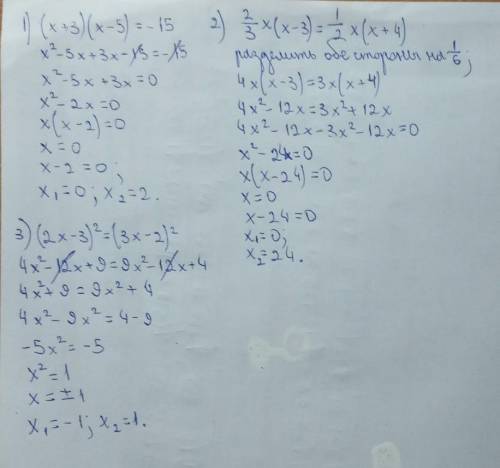 1) (x+3)(x-5)=-15
x²-5x+3x-15=-15
x²-5x+3x=0
x²-2x=0
x(x-2)=0
x=0
x-2=0;
x₁=0; x₂=2.
2) 2/3 x(x-3)=1/2 x(x+4)
разделить обе стороны на 1/6;
4x(x-3)=3x(x+4)
4x²-12x=3x²+12x
4x²-12x-3x²-12x=0
x²-24x=0
x(x-24)=0
x=0
x-24=0
x₁=0;
x₂=24.
3) (2x-3)²=(3x-2)²
4x²-12x+9=9x²-12x+4
4x²+9=9x²+4
4x²-9x²=4-9
-5x²=-5
x²=1
x=±1
x₁=-1; x₂=1.